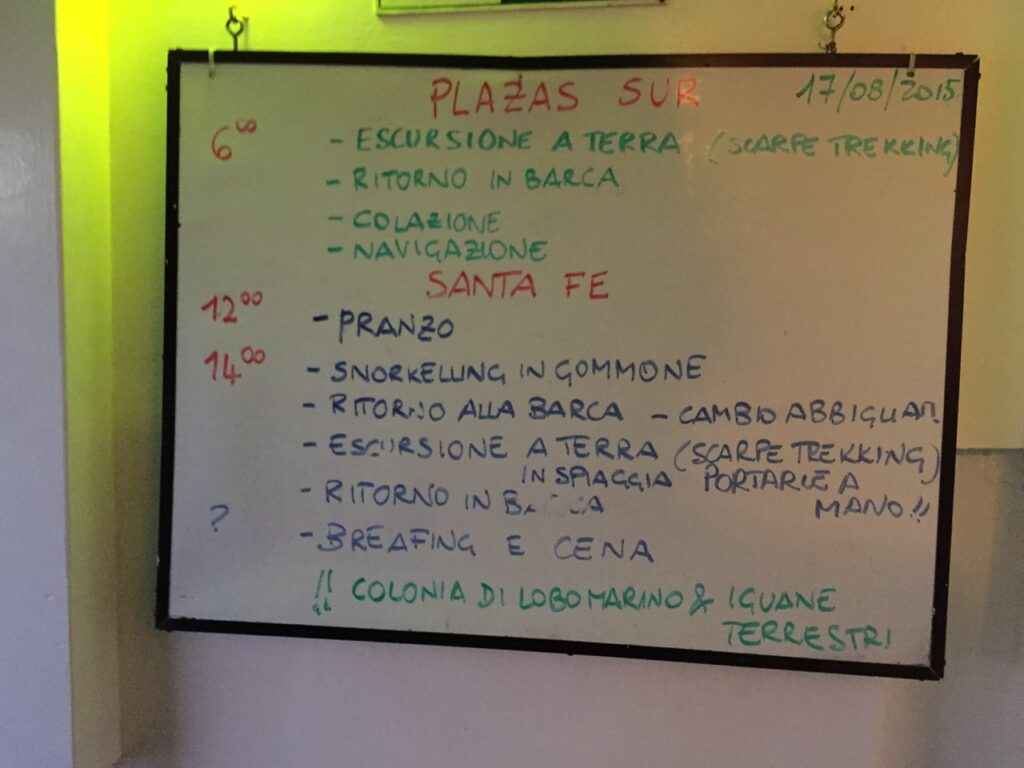 PLAZAS SUR 17/08/2015
6⁰⁰ - ESCURSIONE A TERRA (SCARPE TREKKING)
- RITORNO IN BARCA
- COLAZIONE
- NAVIGAZIONE
SANTA FE
12⁰⁰ - PRANZO
14⁰⁰ - SNORKELUNG IN GOMMONE
- RITORNO ALLA BARCA - CAMBIO ABBIGLIAM.
- ESCURSIONE A TERRA (SCARPE TREKKING)
IN SPIAGGIA PORTARLE A
- RITORNO IN BARCA MANO!!
? - BREAFING E CENA
!! COLONIA DI LOBO MARINO & IGUANE
TERRESTRI